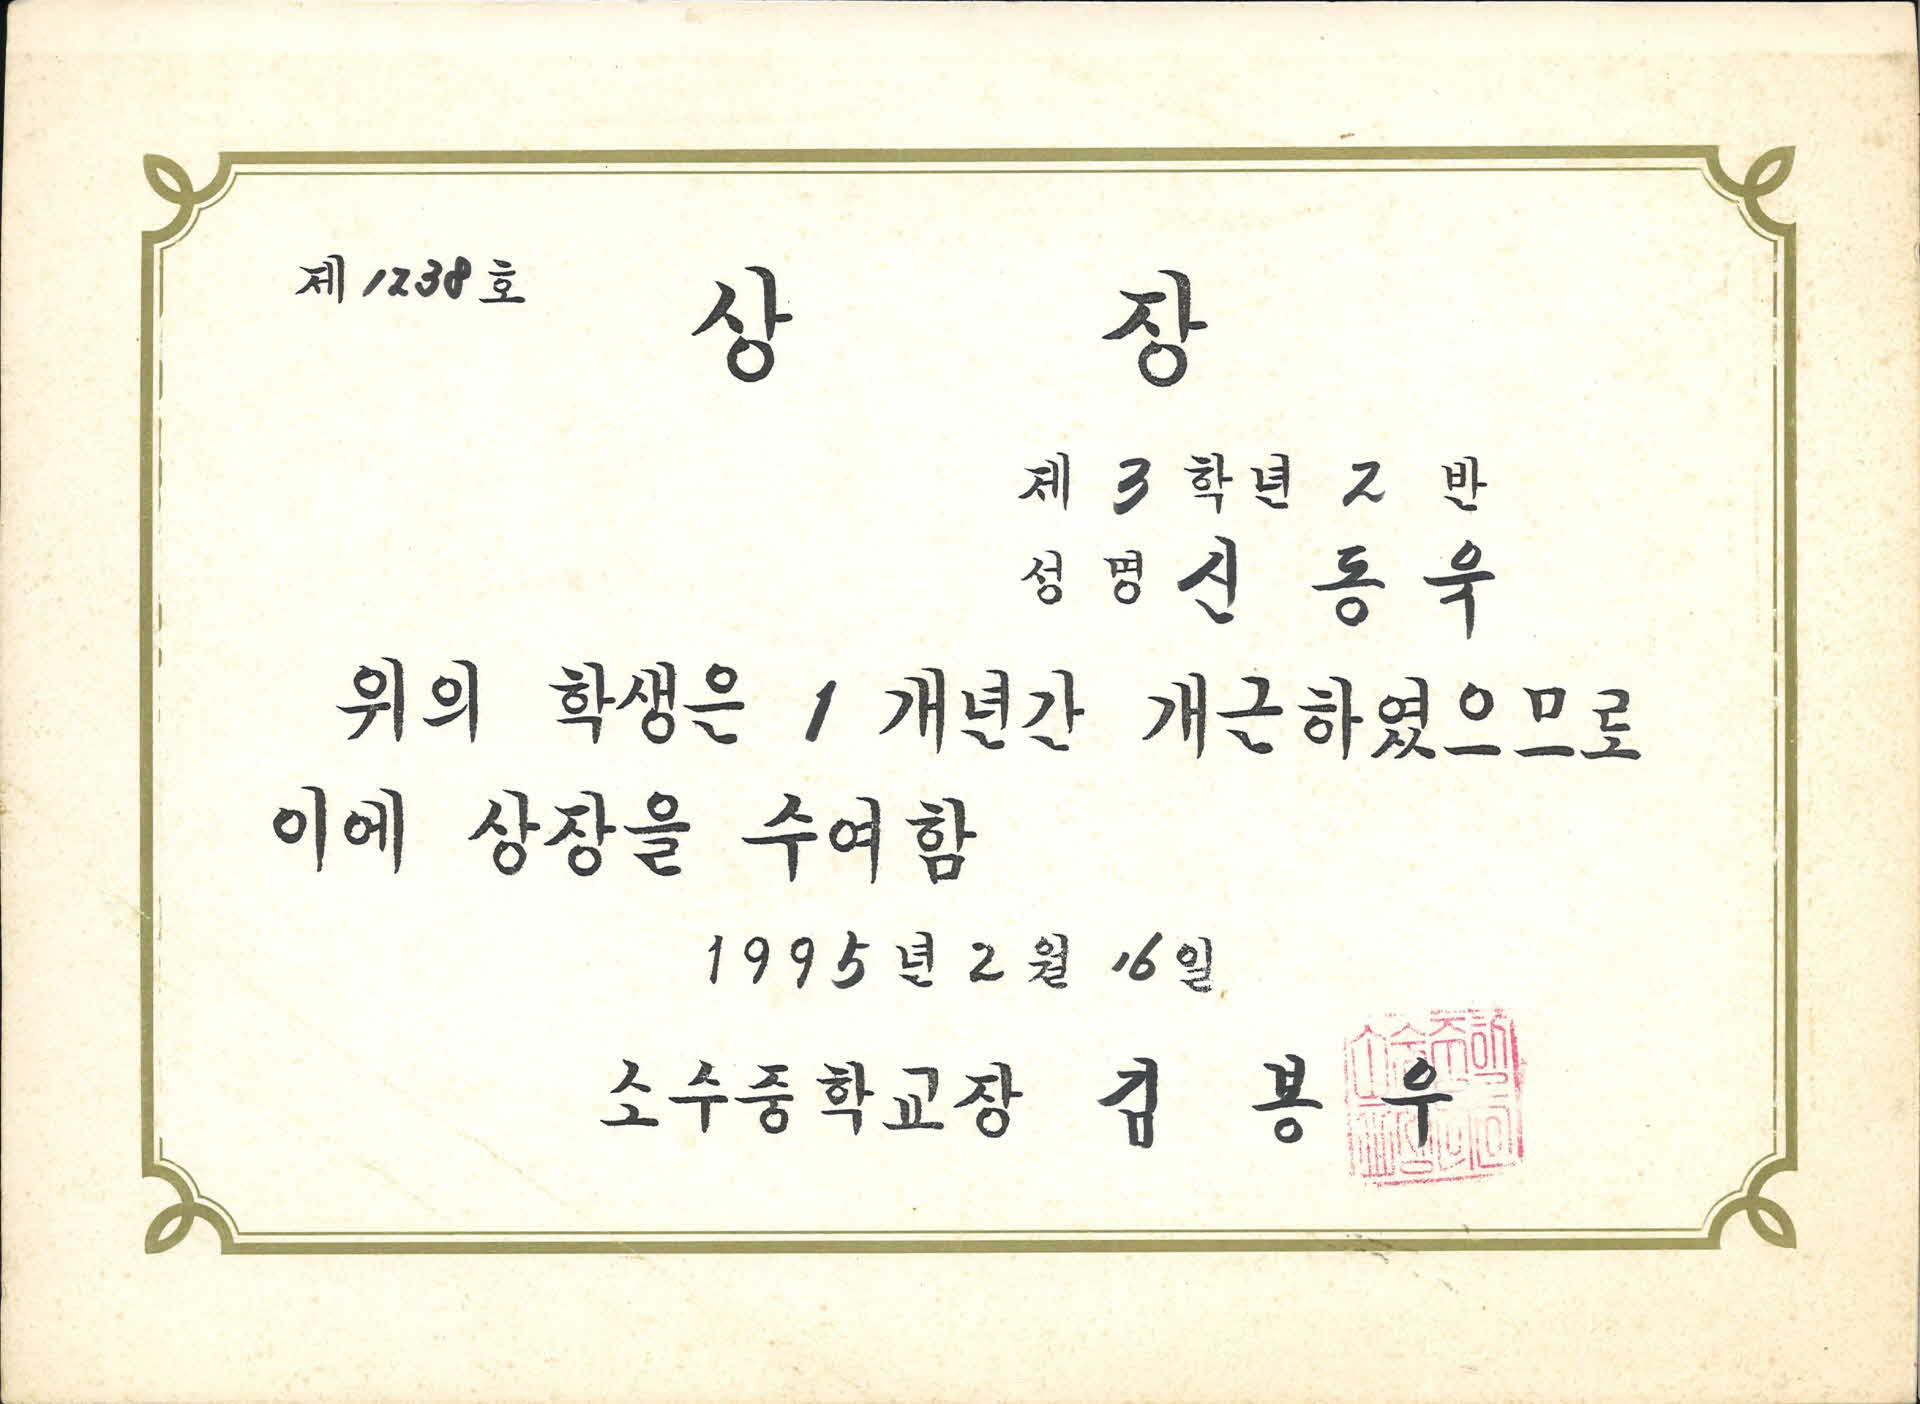 제 1238 호
상 장
제 3 학년 2 반
성 명 신 동 욱
위의 학생은 1 개년간 개근하였으므로
이에 상장을 수여함
1995년 2월 16일
소수중학교장 김 봉 우